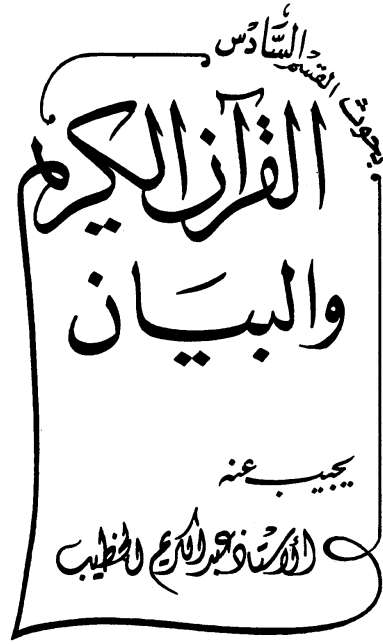 بحوث القسم السَّادس
القرآن الكريم
والبيان
يجيب عنه
الأستاذ عبد الكريم الخطيب